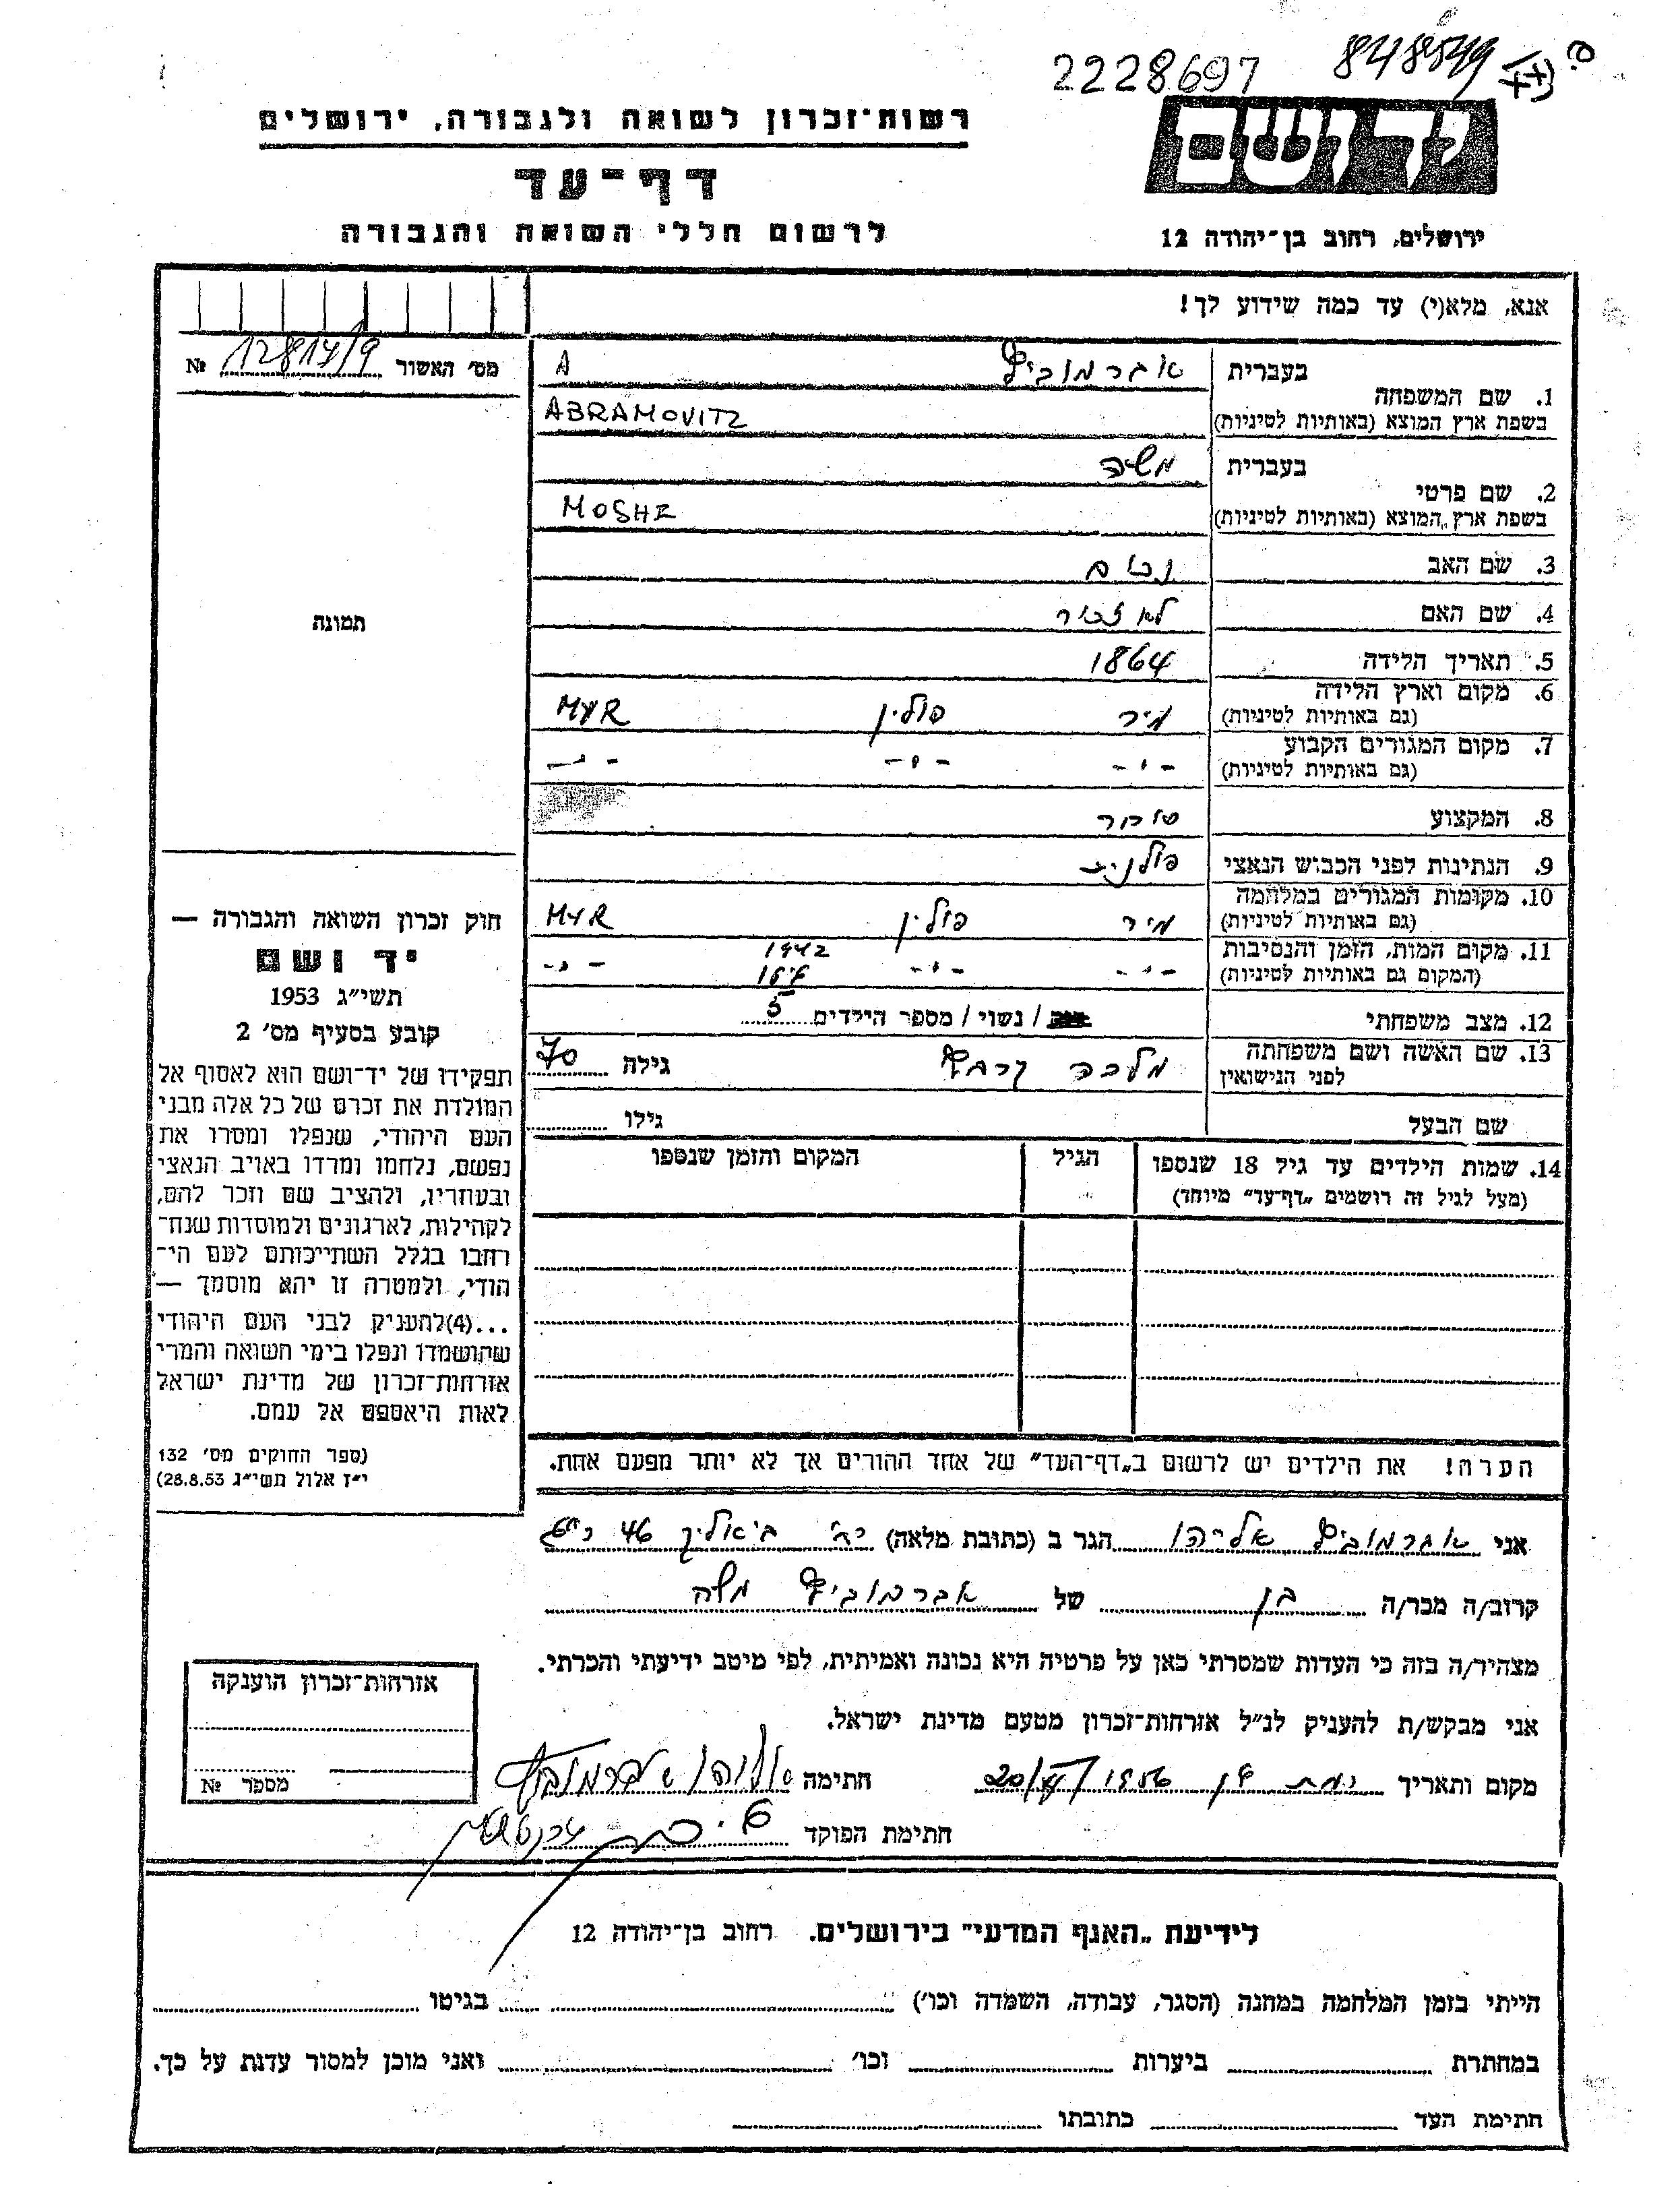 2228697
848549
רשות־זכרון לשואה ולגבורה, ירושלים
יד ושם
דף־עד
לרשום חללי השואה והגבורה
ירושלים, רחוב בן־יהודה 12
אנא, מלא(י) עד כמה שידוע לך!
מס׳ האשור 12817/9 №
1. שם המשפחה
בעברית אברמוביץ A
בשפת ארץ המוצא (באותיות לטיניות) ABRAMOVITZ
2. שם פרטי
בעברית משה
בשפת ארץ המוצא (באותיות לטיניות) MOSHE
3. שם האב
4. שם האם לא זכור
5. תאריך הלידה 1864
6. מקום וארץ הלידה
(גם באותיות לטיניות) מיר פולין MYR
7. מקום המגורים הקבוע
(גם באותיות לטיניות) -"- -"- -"-
8. המקצוע סוחר
9. הנתינות לפני הכבוש הנאצי פולנית
10. מקומות המגורים במלחמה
(גם באותיות לטיניות) מיר פולין MYR
11. מקום המות, הזמן והנסיבות 1942
(המקום גם באותיות לטיניות) -"- -"- -"-
12. מצב משפחתי / נשוי / מספר הילדים 5
13. שם האשה ושם משפחתה
לפני הנישואין מלכה גילה 70
שם הבעל גילו
14. שמות הילדים עד גיל 18 שנספו הגיל המקום והזמן שנספו
(מעל לגיל זה רושמים „דף־עד״ מיוחד)
הערה! את הילדים יש לרשום ב„דף־העד״ של אחד ההורים אך לא יותר מפעם אחת.
תמונה
חוק זכרון השואה והגבורה —
יד ושם
תשי״ג 1953
קובע בסעיף מס׳ 2
תפקידו של יד־ושם הוא לאסוף אל
המולדת את זכרם של כל אלה מבני
העם היהודי, שנפלו ומסרו את
נפשם, נלחמו ומרדו באויב הנאצי
ובעוזריו, ולהציב שם וזכר להם,
לקהילות, לארגונים ולמוסדות שנח־
רחבו בגלל השתייכותם לעם הי־
הודי, ולמטרה זו יהא מוסמך —
...(4) להעניק לבני העם היהודי
שהושמדו ונפלו בימי השואה והמרי
אזרחות־זכרון של מדינת ישראל
לאות היאספם אל עמם.
(ספר החוקים מס׳ 132
י״ז אלול תשי״ג 28.8.53)
אני אברמוביץ אליהו הגר ב (כתובת מלאה) רח׳ ביאליק 46 ר״ג
קרוב/ה מכר/ה בן של אברמוביץ משה
מצהיר/ה בזה כי העדות שמסרתי כאן על פרטיה היא נכונה ואמיתית, לפי מיטב ידיעתי והכרתי.
אני מבקש/ת להעניק לנ״ל אזרחות־זכרון מטעם מדינת ישראל.
מקום ותאריך רמת גן חתימה אליהו אברמוביץ
חתימת הפוקד
אזרחות־זכרון הוענקה
מספר №
לידיעת „האגף המדעי״ בירושלים. רחוב בן־יהודה 12
הייתי בזמן המלחמה במחנה (הסגר, עבודה, השמדה וכו׳) בגיטו
במחתרת ביערות וכו׳ ואני מוכן למסור עדות על כך.
חתימת העד כתובתו